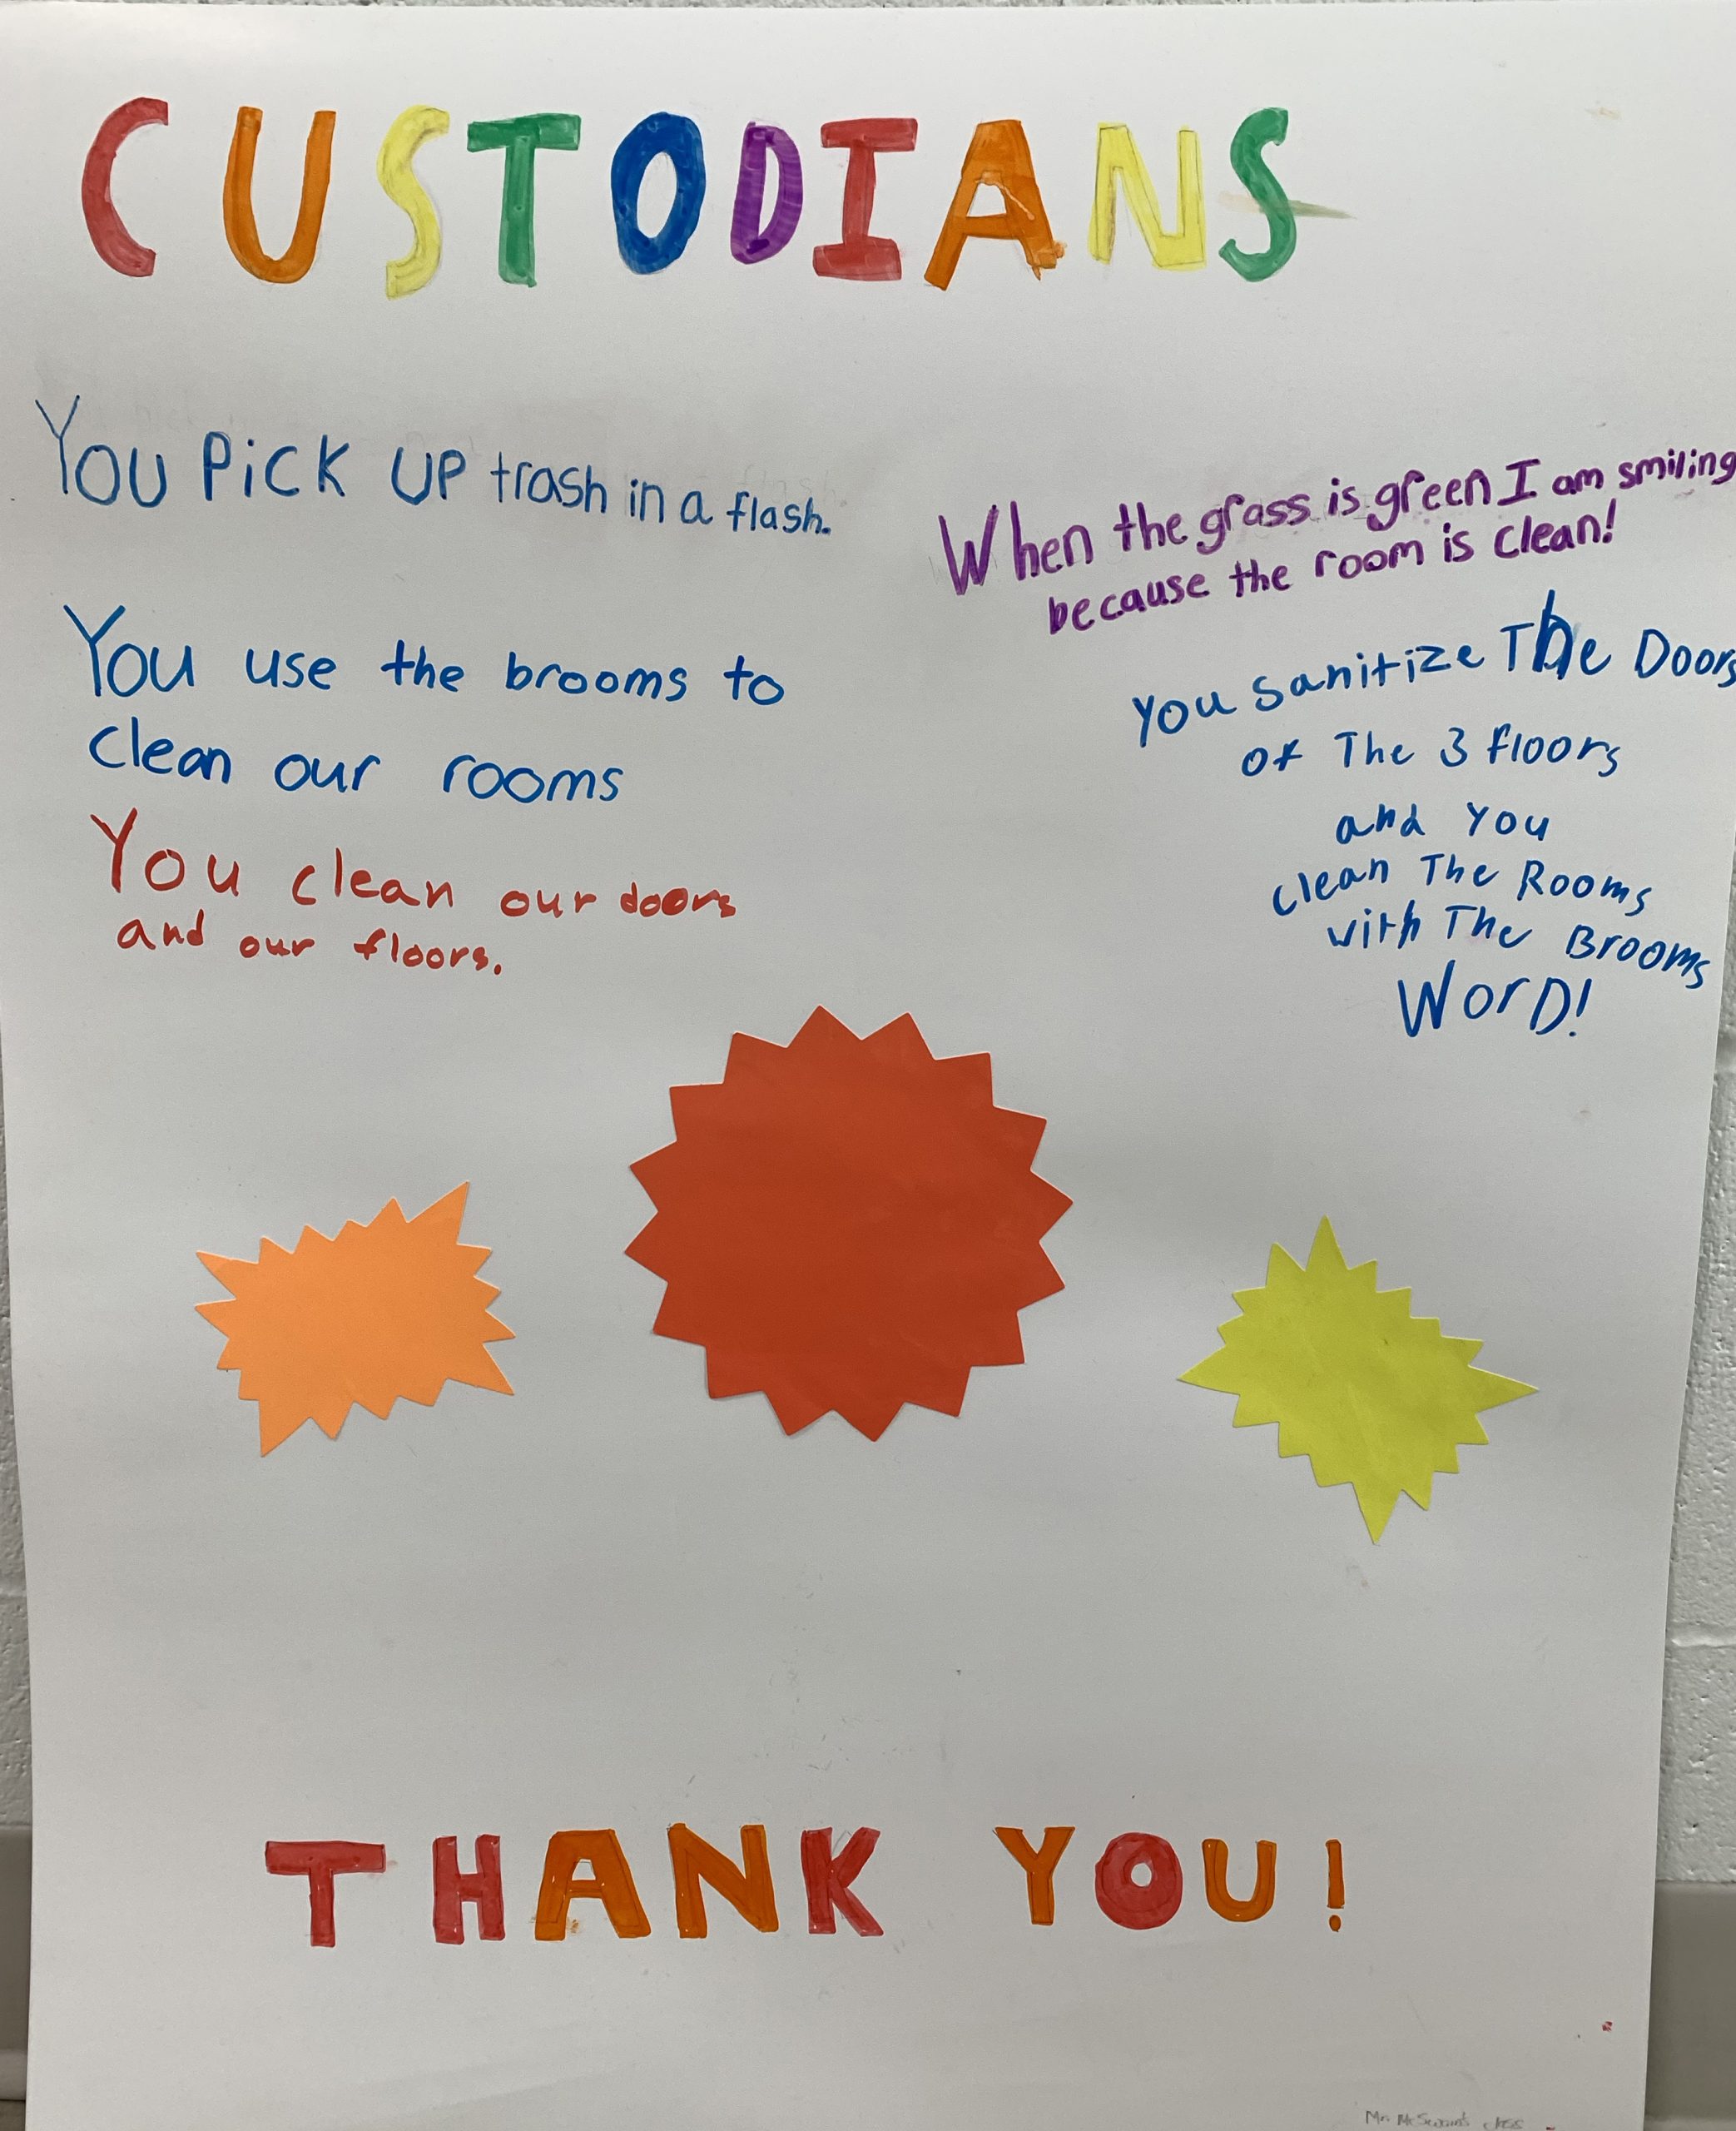 CUSTODIANS
YOU PiCK UP trash in a flash.
When the grass is green I am smiling
because the room is clean!
You use the brooms to
clean our rooms
You sanitize The Doors
of The 3 floors
and You
clean The Rooms
with The Brooms
WorD!
You clean our doors
and our floors.
THANK YOU!
Mr. McSwain's class